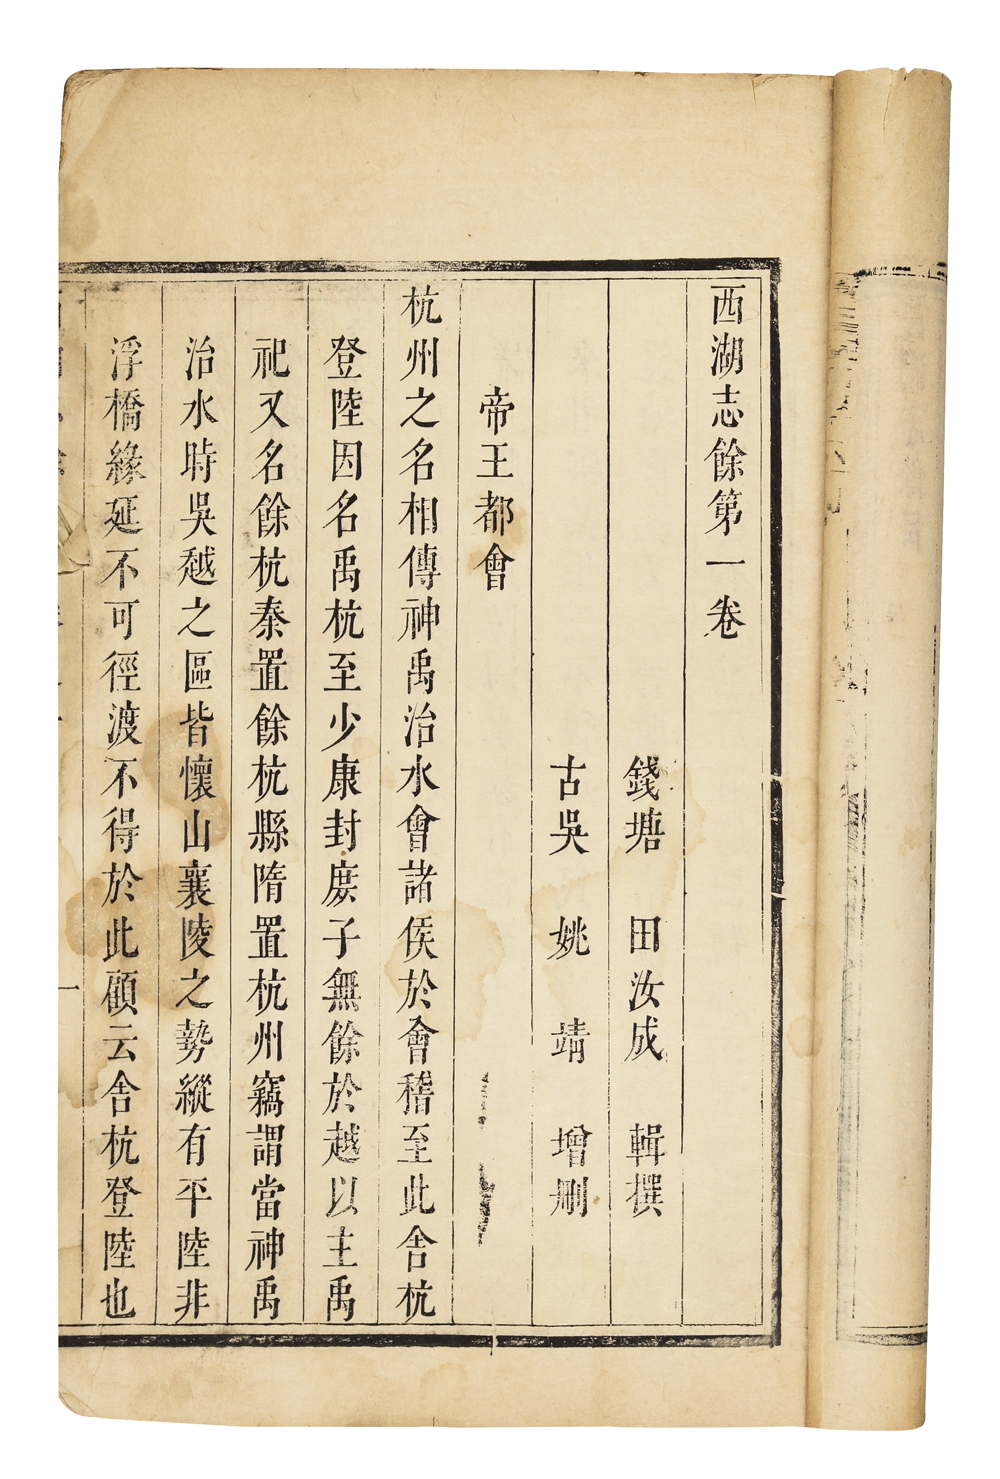 西湖志餘第一卷
錢塘 田汝成 輯撰
古吳 姚 靖 增刪
帝王都會
杭州之名相傳神禹治水會諸侯於會稽至此舍杭
登陸因名禹杭至少康封庶子無餘於越以主禹
祀又名餘杭秦置餘杭縣隋置杭州竊謂當神禹
治水時吳越之區皆懷山襄陵之勢縱有平陸非
浮橋緣延不可徑渡不得於此顧云舍杭登陸也
一